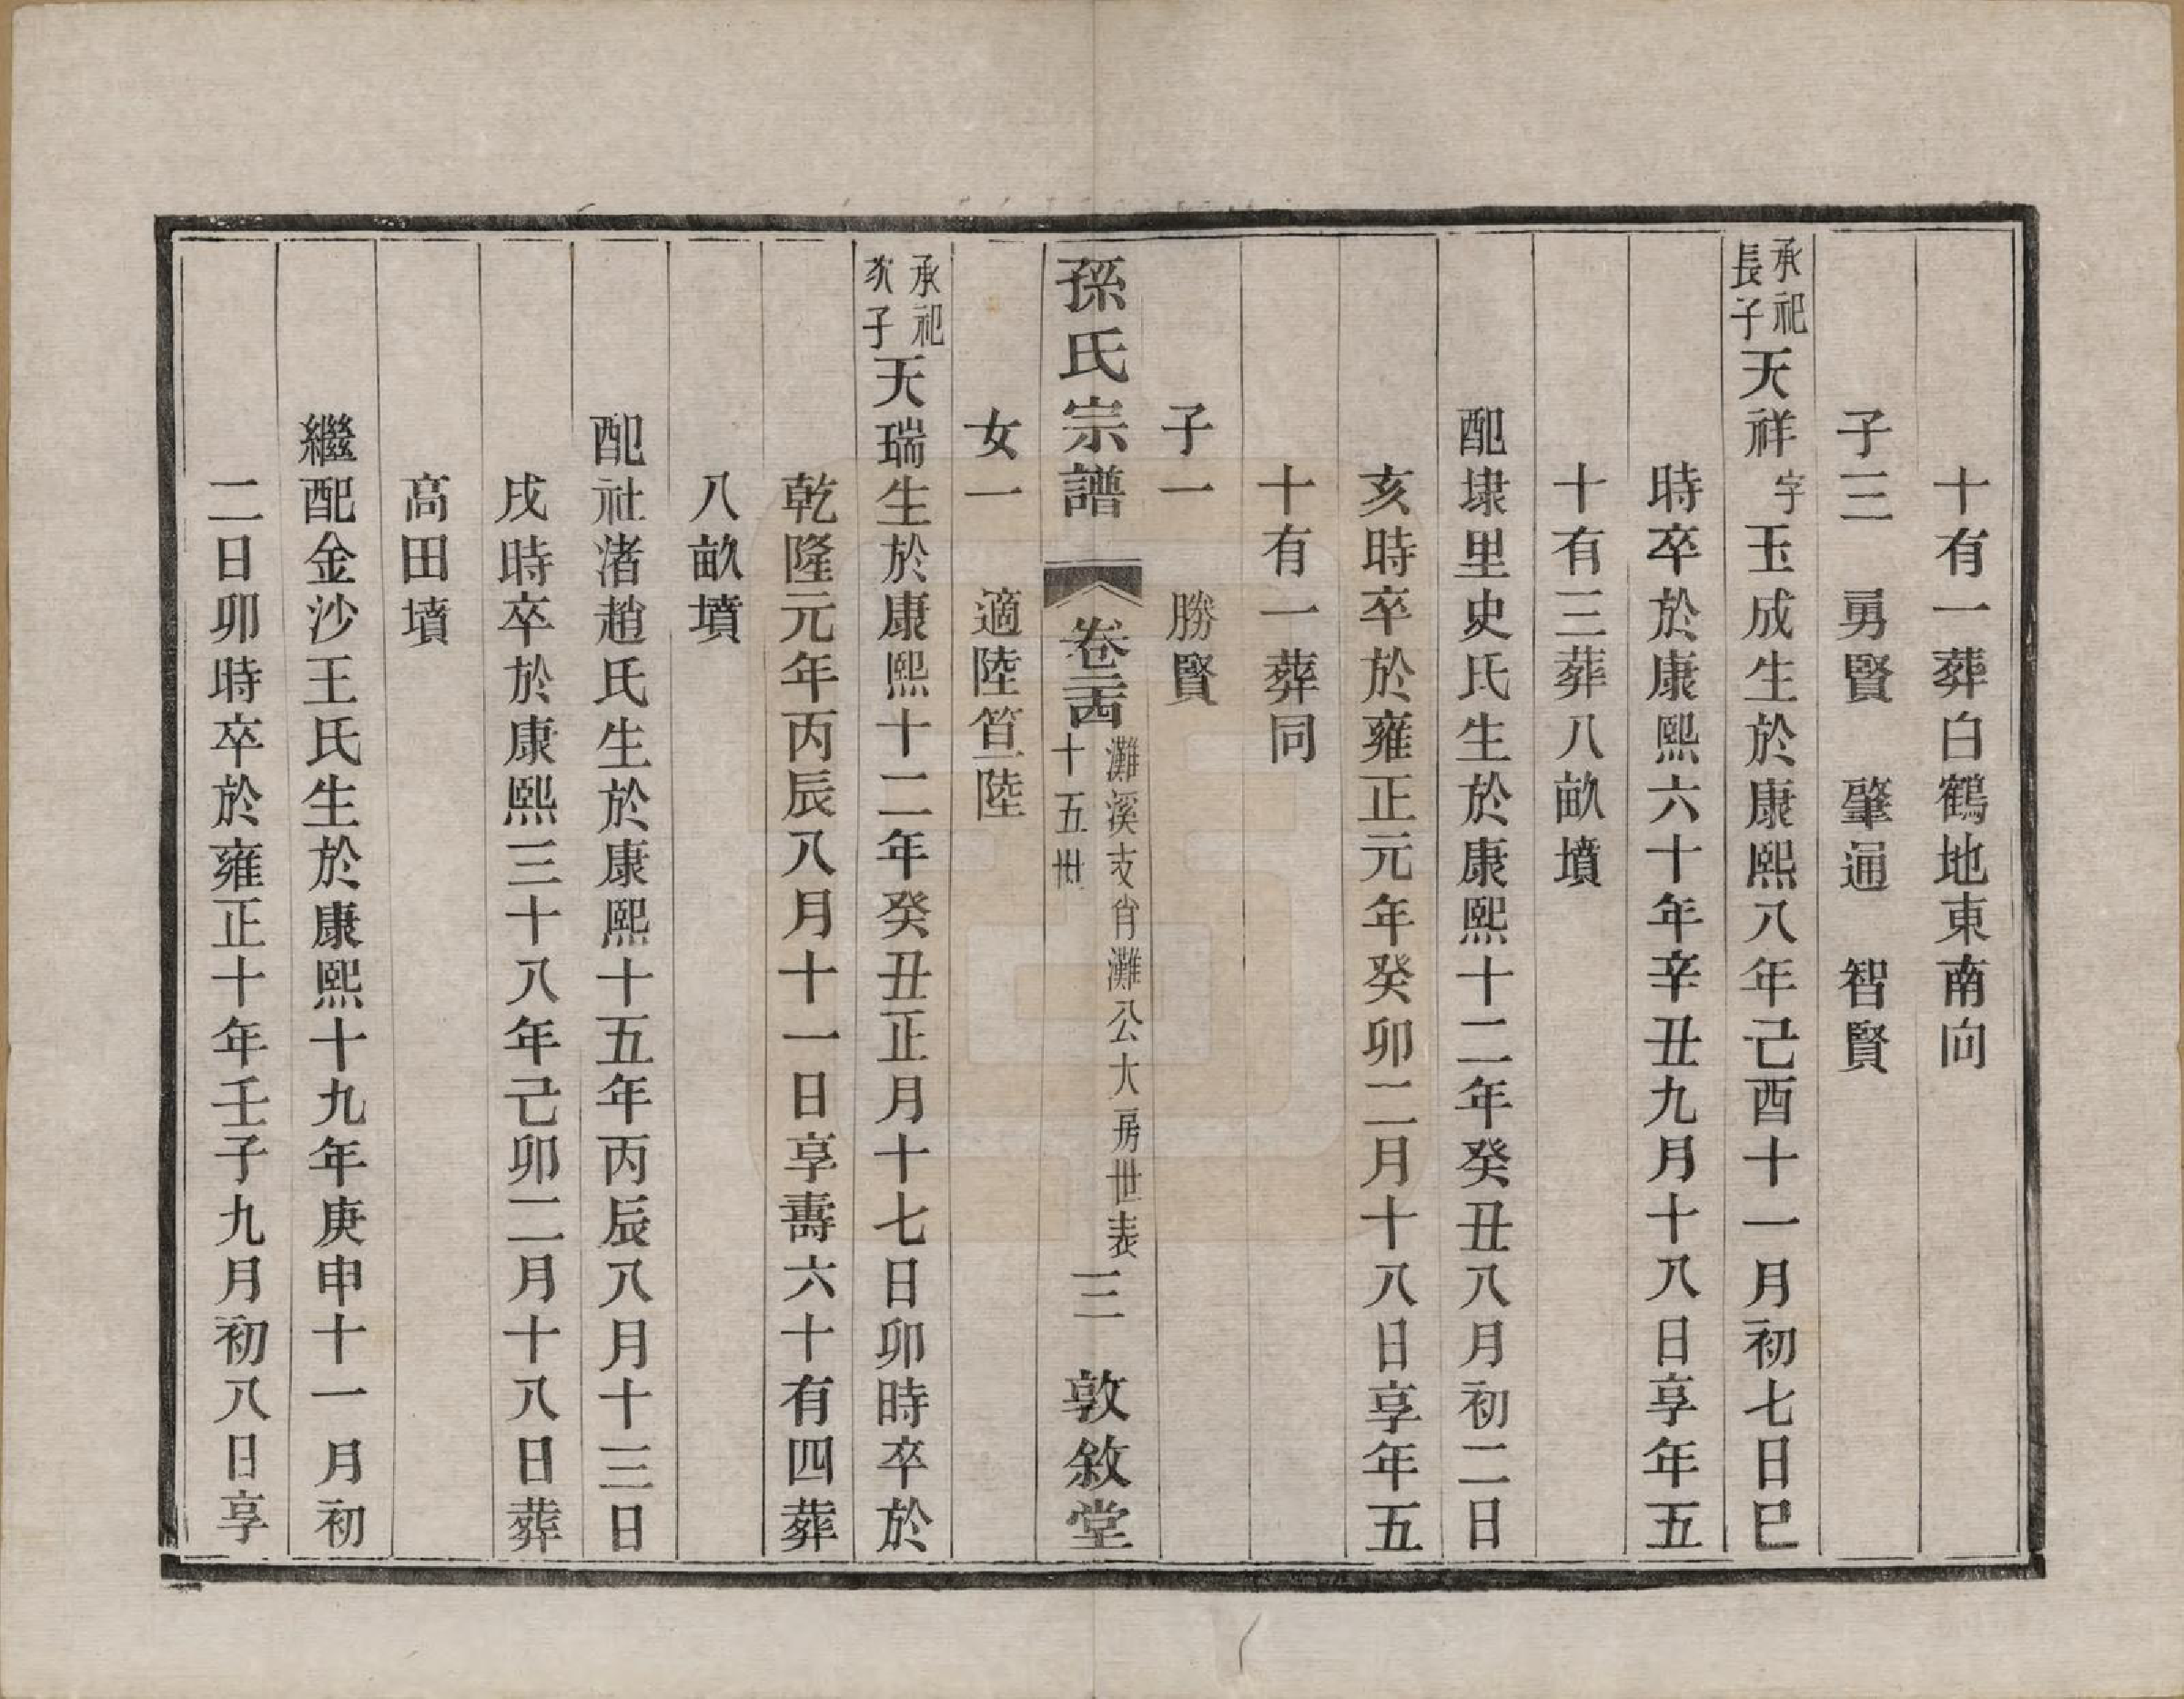 十有一葬白鶴地東南向
子三　勇賢　肇通　智賢
承祀長子天祥字玉成生於康熙八年己酉十一月初七日巳
時卒於康熙六十年辛丑九月十八日享年五
十有三葬八畝墳
配埭里史氏生於康熙十二年癸丑八月初二日
亥時卒於雍正元年癸卯二月十八日享年五
十有一葬同
子一　勝賢
孫氏宗譜　卷二十四　灘溪支肖灘公大房世表十五卅　三　敦敘堂
女一　適陸笪陸
承祀次子天瑞生於康熙十二年癸丑正月十七日卯時卒於
乾隆元年丙辰八月十一日享壽六十有四葬
八畝墳
配社渚趙氏生於康熙十五年丙辰八月十三日
戌時卒於康熙三十八年己卯二月十八日葬
高田墳
繼配金沙王氏生於康熙十九年庚申十一月初
二日卯時卒於雍正十年壬子九月初八日享